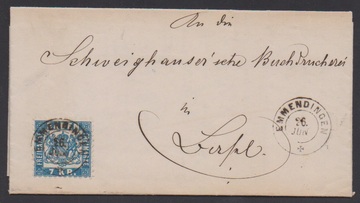 An die
Schweighauser'sche Buchdruckerei
in
Basel.
EMMENDINGEN
26.
JUN
EMMENDINGEN
26.
JUN
FREIMARKE
7 KR.